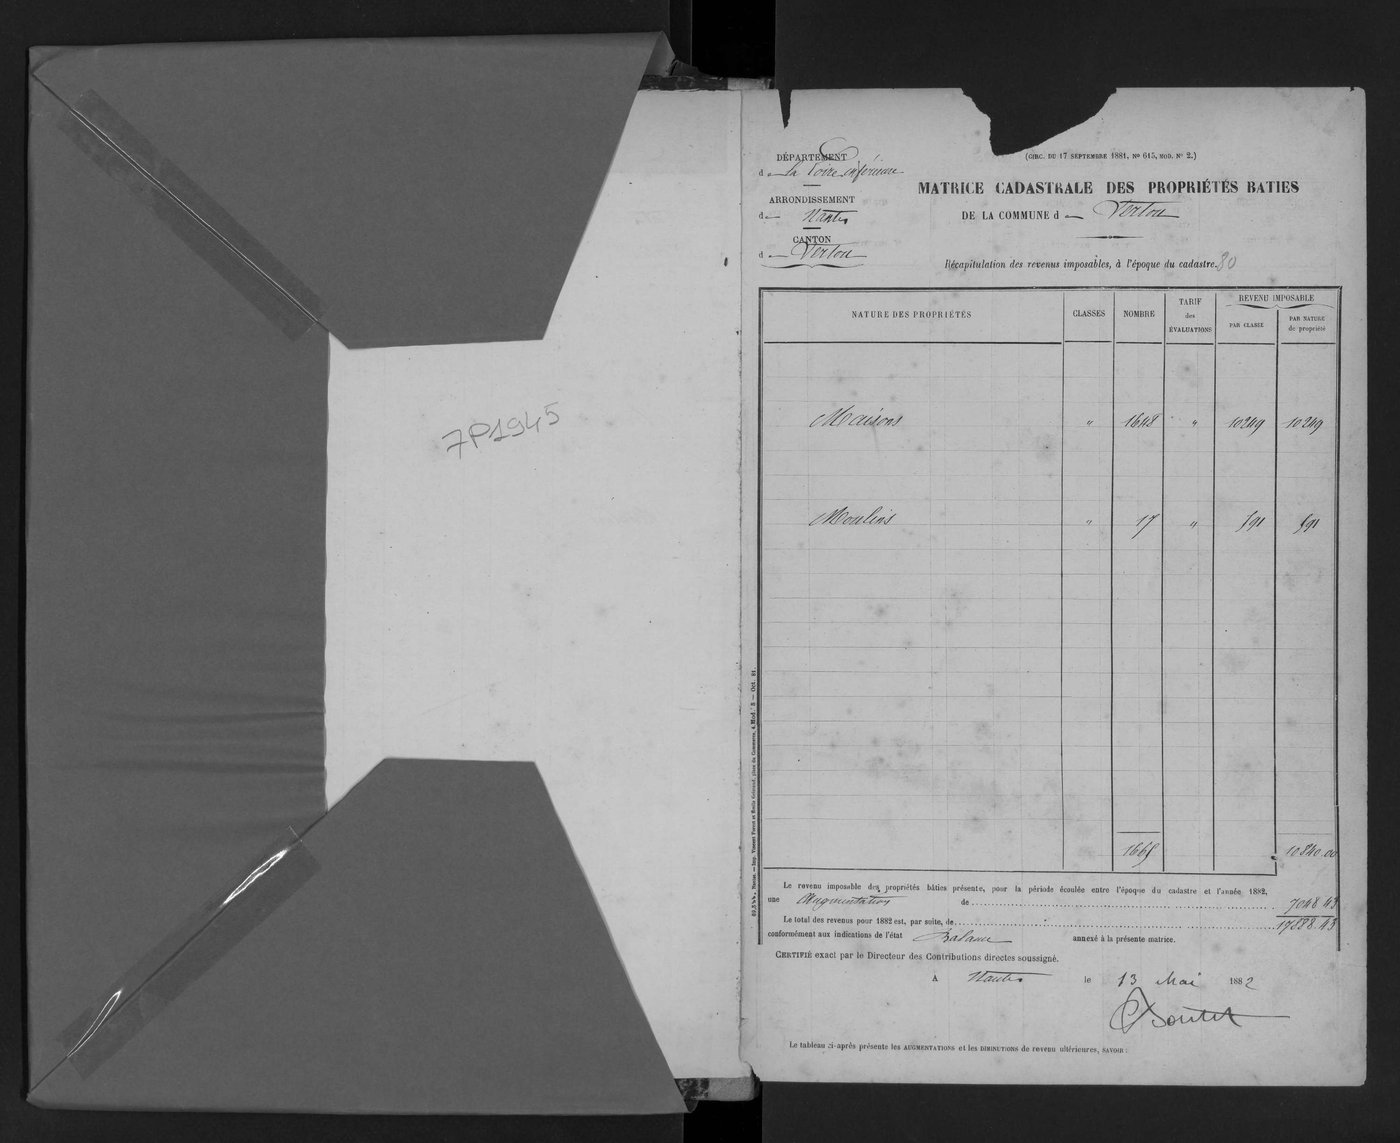 7P1945
(CIRC. DU 17 SEPTEMBRE 1881, No 615, MOD. No 2.)
DÉPARTEMENT
d la Loire inférieure
ARRONDISSEMENT
d Nantes
CANTON
d Vertou
MATRICE CADASTRALE DES PROPRIÉTÉS BATIES
DE LA COMMUNE d Vertou
Récapitulation des revenus imposables, à l'époque du cadastre.
NATURE DES PROPRIÉTÉS CLASSES NOMBRE TARIF des ÉVALUATIONS REVENU IMPOSABLE
PAR CLASSE PAR NATURE de propriété
Maisons " 1648 " 10249 10249
Moulins " 17 " 591 591
1665 10840.00
Le revenu imposable des propriétés bâties présente, pour la période écoulée entre l'époque du cadastre et l'année 1882,
une Augmentation de 7048 43
Le total des revenus pour 1882 est, par suite, de 17888.43
conformément aux indications de l'état Balance annexé à la présente matrice.
CERTIFIÉ exact par le Directeur des Contributions directes soussigné.
A Nantes le 13 Mai 1882
Le tableau ci-après présente les AUGMENTATIONS et les DIMINUTIONS de revenu ultérieures, SAVOIR :